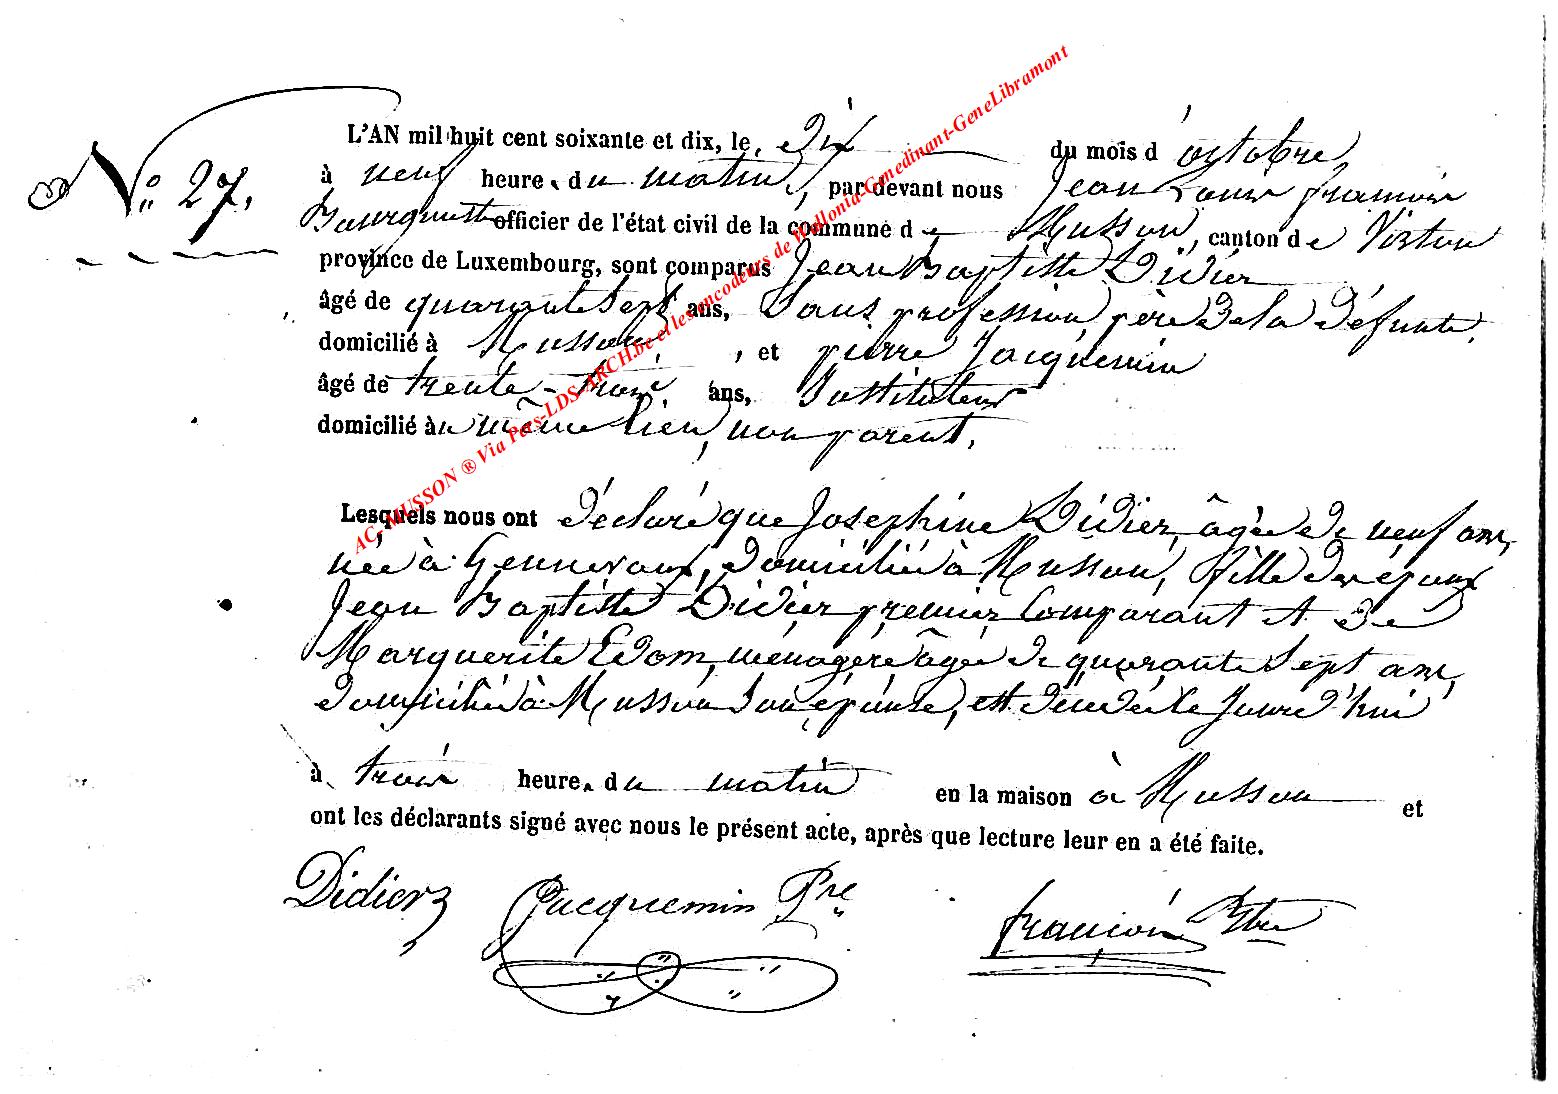 N° 27.
L'AN mil huit cent soixante et dix, le dix du mois d'octobre,
à neuf heure. du matin, par devant nous Jean Louis François
officier de l'état civil de la commune de Musson, canton de Virton
province de Luxembourg, sont comparus Jean Baptiste Didier
âgé de quarante sept ans, sans profession, père de la défunte,
domicilié à Musson, et pierre Jacquemin
âgé de trente-trois ans, Instituteur
domicilié au même lieu, non parent.
Lesquels nous ont déclaré que Josephine Didier, âgée de neuf ans,
née à Gennevaux, domiciliée à Musson, fille des époux
Jean Baptiste Didier premier Comparant et de
Marguerite Edom, ménagère âgée de quarante sept ans,
domiciliée à Musson son épouse, est décédée le jourd'hui
à trois heure. du matin en la maison à Musson et
ont les déclarants signé avec nous le présent acte, après que lecture leur en a été faite.
Didier Jacquemin Pre françois
AC-MUSSON ® Via Pers-LDS-ARCH.be et les encodeurs de Wallonia-Genedinant-GeneLibramont